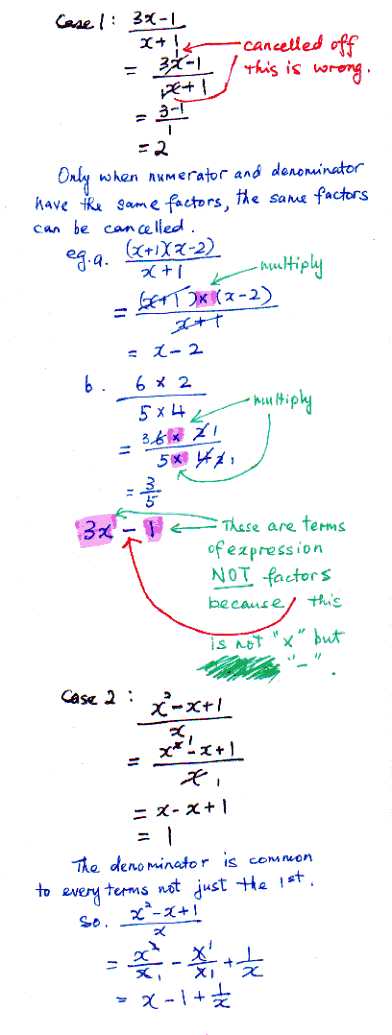 Case 1 : (3x-1)/(x+1)
cancelled off
this is wrong.
= (3x-1)/(x+1) 1 1
= (3-1)/1
= 2
Only when numerator and denominator
have the same factors, the same factors
can be cancelled.
eg.a. ((x+1)(x-2))/(x+1)
multiply
= ((x+1)×(x-2))/(x+1)
= x-2
b. (6 × 2)/(5 × 4)
multiply
= (3 6 × 2 1)/(5 × 4 2 1)
= 3/5
3x - 1 ← These are terms
of expression
NOT factors
because this
is not "x" but
"-".
Case 2 : (x²-x+1)/x
= (x² 1 -x+1)/(x 1)
= x-x+1
= 1
The denominator is common
to every terms not just the 1st.
So. (x²-x+1)/x
= x²/x 1 - x 1/x 1 + 1/x
= x - 1 + 1/x